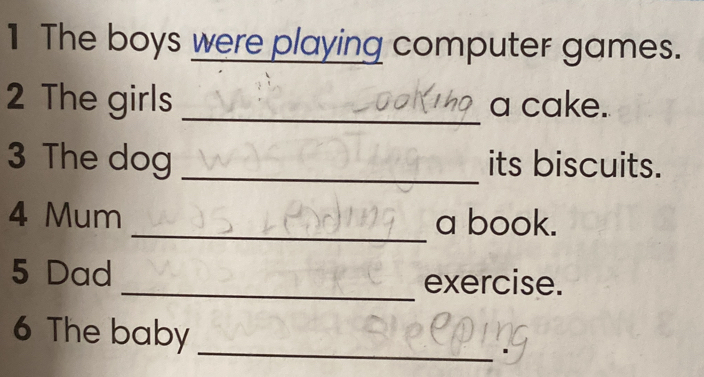 1 The boys were playing computer games.
2 The girls cooking a cake.
3 The dog was eating its biscuits.
4 Mum was reading a book.
5 Dad was exercise.
6 The baby sleeping.